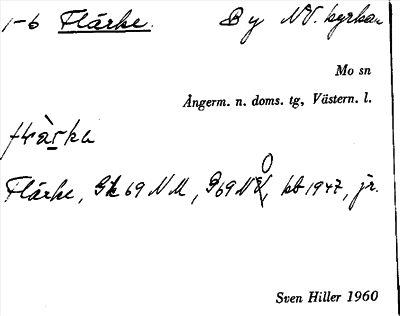 1-6 Flärke. By NV. kyrkan
Mo sn
Ångerm. n. doms. tg, Västern. l.
Flärke, Gk 69 NM, G69NO, kb 1947, jr.
Sven Hiller 1960